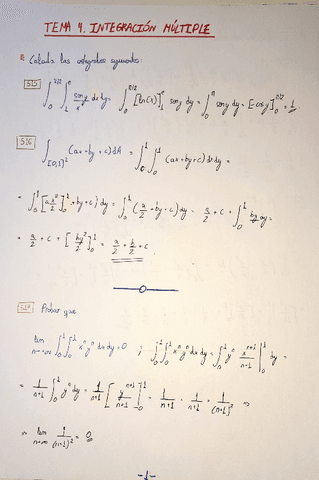 TEMA 4. INTEGRACIÓN MÚLTIPLE
Calcula las integrales siguientes:
S15 ∫₀^{π/2} ∫₁^e (sen y / x) dx dy = ∫₀^{π/2} [ln(x)]₁^e sen y dy = ∫₀^{π/2} sen y dy = [-cos y]₀^{π/2} = 1
S16 ∫_{[0,1]²} (ax+by+c) dA = ∫₀¹ ∫₀¹ (ax+by+c) dx dy =
= ∫₀¹ [ax²/2]₀¹ + by + c) dy = ∫₀¹ (a/2 + by + c) dy = a/2 + c + ∫₀¹ by dy =
= a/2 + c + [by²/2]₀¹ = a/2 + b/2 + c
Probar que
lim n→∞ ∫₀¹ ∫₀¹ xⁿyⁿ dx dy = 0 ; ∫₀¹ ∫₀¹ xⁿyⁿ dx dy = ∫₀¹ yⁿ x^{n+1}/(n+1) |₀¹ dy =
= 1/(n+1) ∫₀¹ yⁿ dy = 1/(n+1) [y^{n+1}/(n+1)]₀¹ = 1/(n+1) · 1/(n+1) = 1/(n+1)² ⇒
⇒ lim n→∞ 1/(n+1)² = 0
-1-